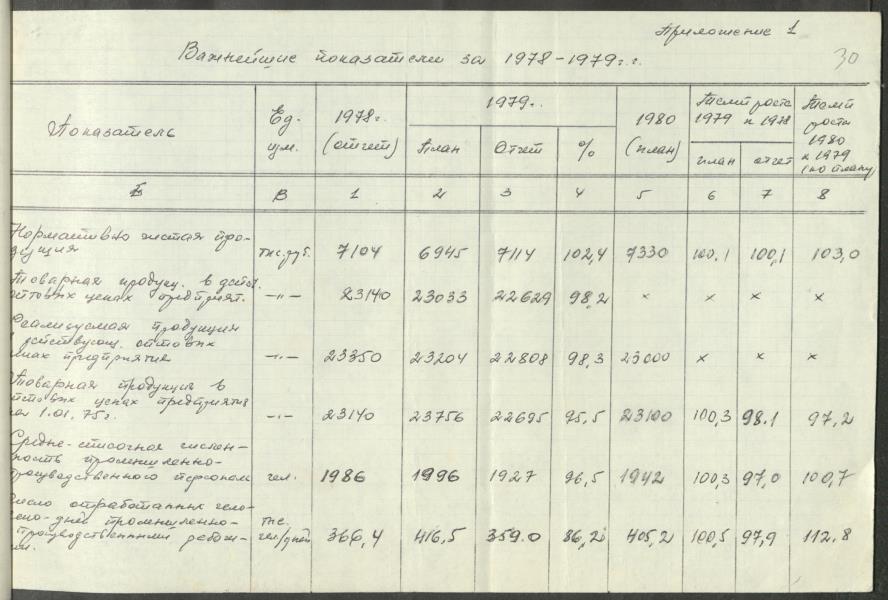 Приложение 1
Важнейшие показатели за 1978-1979г.г. 30
Показатель Ед. изм. 1978г. (отчет) 1979г. 1980 (план) Темп роста 1979 к 1978 Темп роста 1980 к 1979 (по плану)
План Отчет % план отчет
Б В 1 2 3 4 5 6 7 8
Нормативно чистая про-
дукция тыс.руб. 7104 6945 7114 102,4 7330 100.1 100,1 103,0
Товарная продукц. в дейст.
оптовых ценах предприят. -"- 23140 23033 22629 98,2 x x x x
Реализуемая продукция
в действующ. оптовых
ценах предприятия -"- 23350 23204 22808 98,3 23000 x x x
Товарная продукция в
оптовых ценах предприятия
на 1.01.75г. -"- 23140 23756 22695 95,5 23100 100,3 98.1 97,2
Средне-списочная числен-
ность промышленно-
производственного персонала чел. 1986 1996 1927 96,5 1942 100,3 97,0 100,7
Число отработанных чело-
веко-дней промышленно-
производственными рабочи-
ми. тыс. чел/дней 366,4 416,5 359.0 86,2 405,2 100,5 97,9 112.8